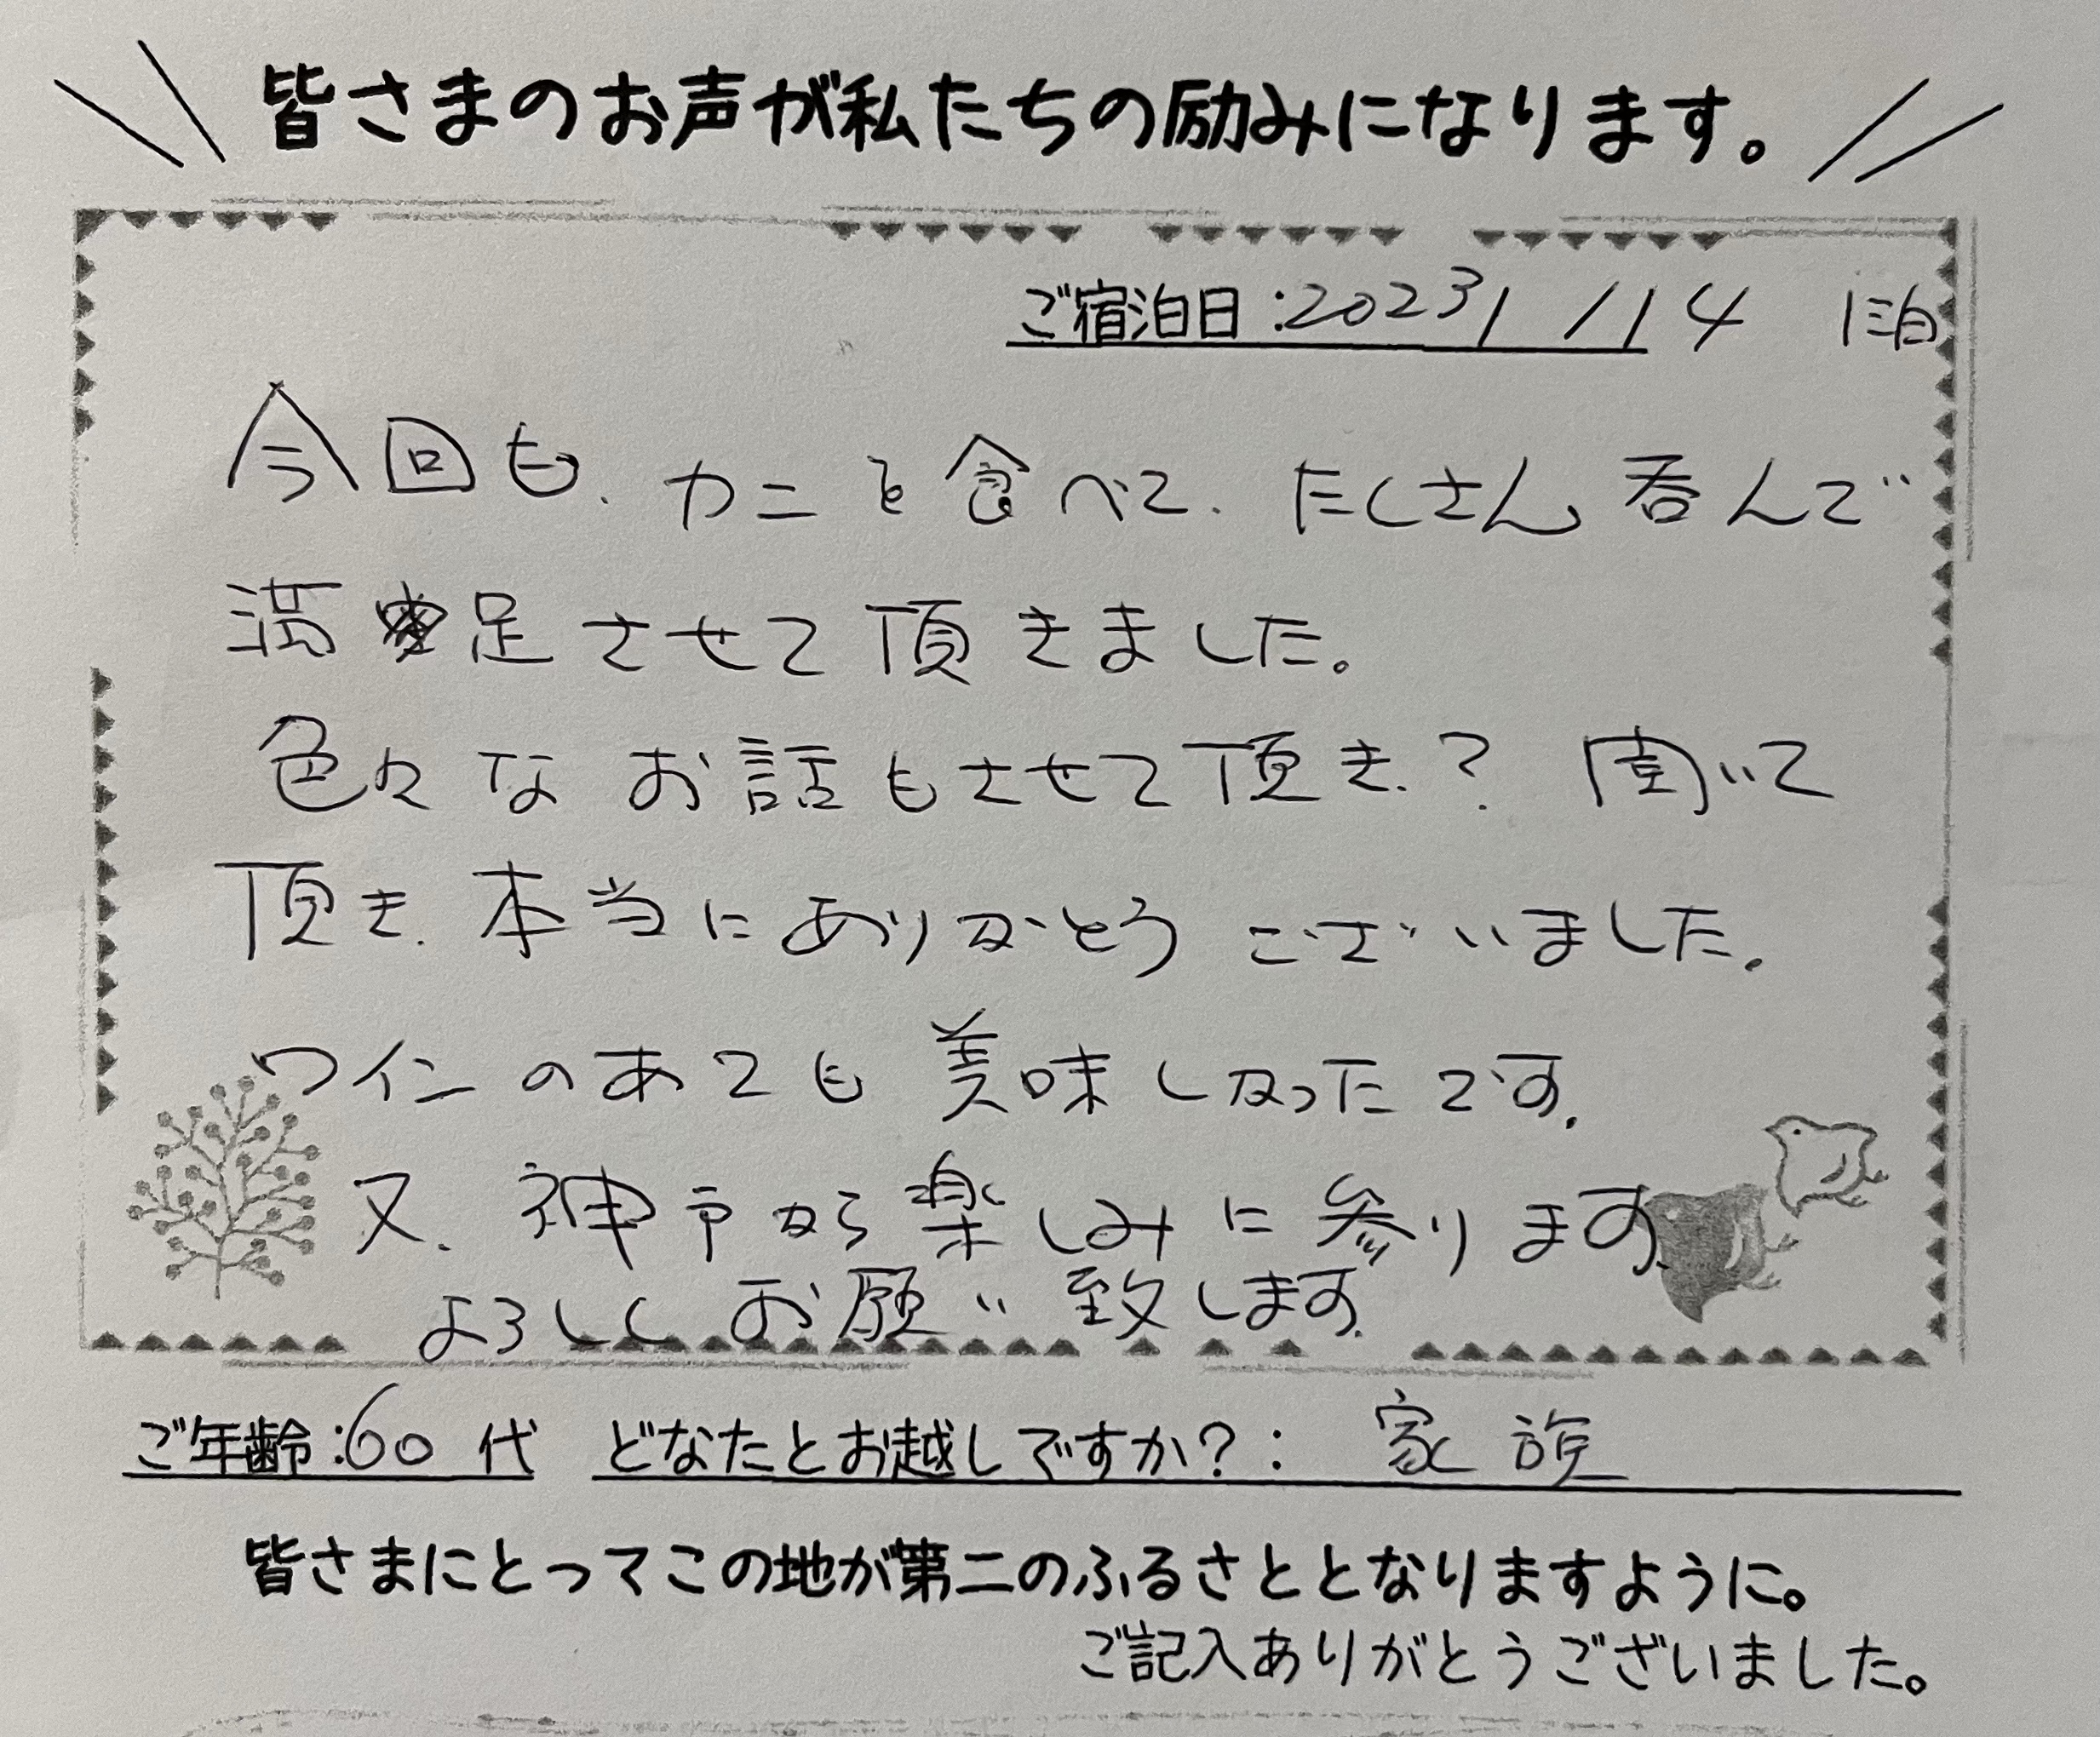 皆さまのお声が私たちの励みになります。
ご宿泊日:2023/ /14 に泊
今回も、カニを食べて、たくさん呑んで
満足させて頂きました。
色々なお話もさせて頂き、? 聞いて
頂き、本当にありがとうございました。
ワインのあても美味しかったです。
又、神戸から楽しみに参ります、
よろしくお願い致します。
ご年齢:60代 どなたとお越しですか?: 家族
皆さまにとってこの地が第二のふるさととなりますように。
ご記入ありがとうございました。